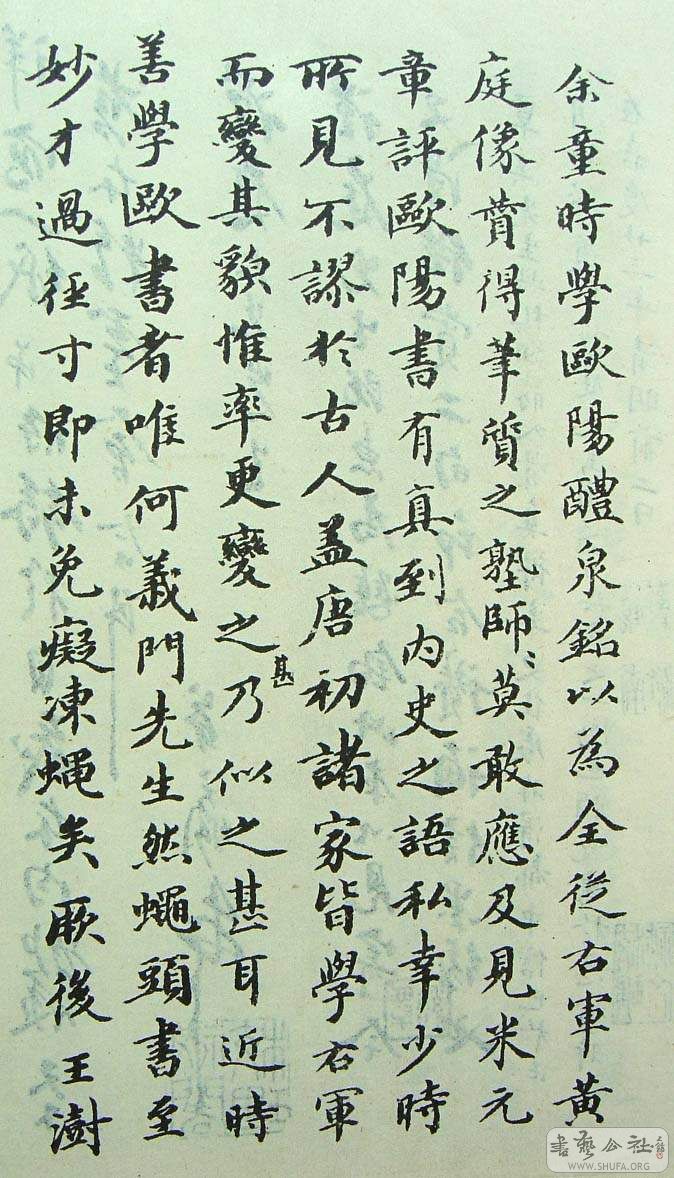 余童時學歐陽醴泉銘以為全從右軍黃
庭像贊得筆質之塾師﹕莫敢應及見米元
章評歐陽書有真到內史之語私幸少時
所見不謬於古人盖唐初諸家皆學右軍
而變其貌惟率更變之甚乃似之甚耳近時
善學歐書者唯何義門先生然蠅頭書至
妙才過徑寸即未免癡凍蝇矣厥後王澍
書藝公社
WWW.SHUFA.ORG